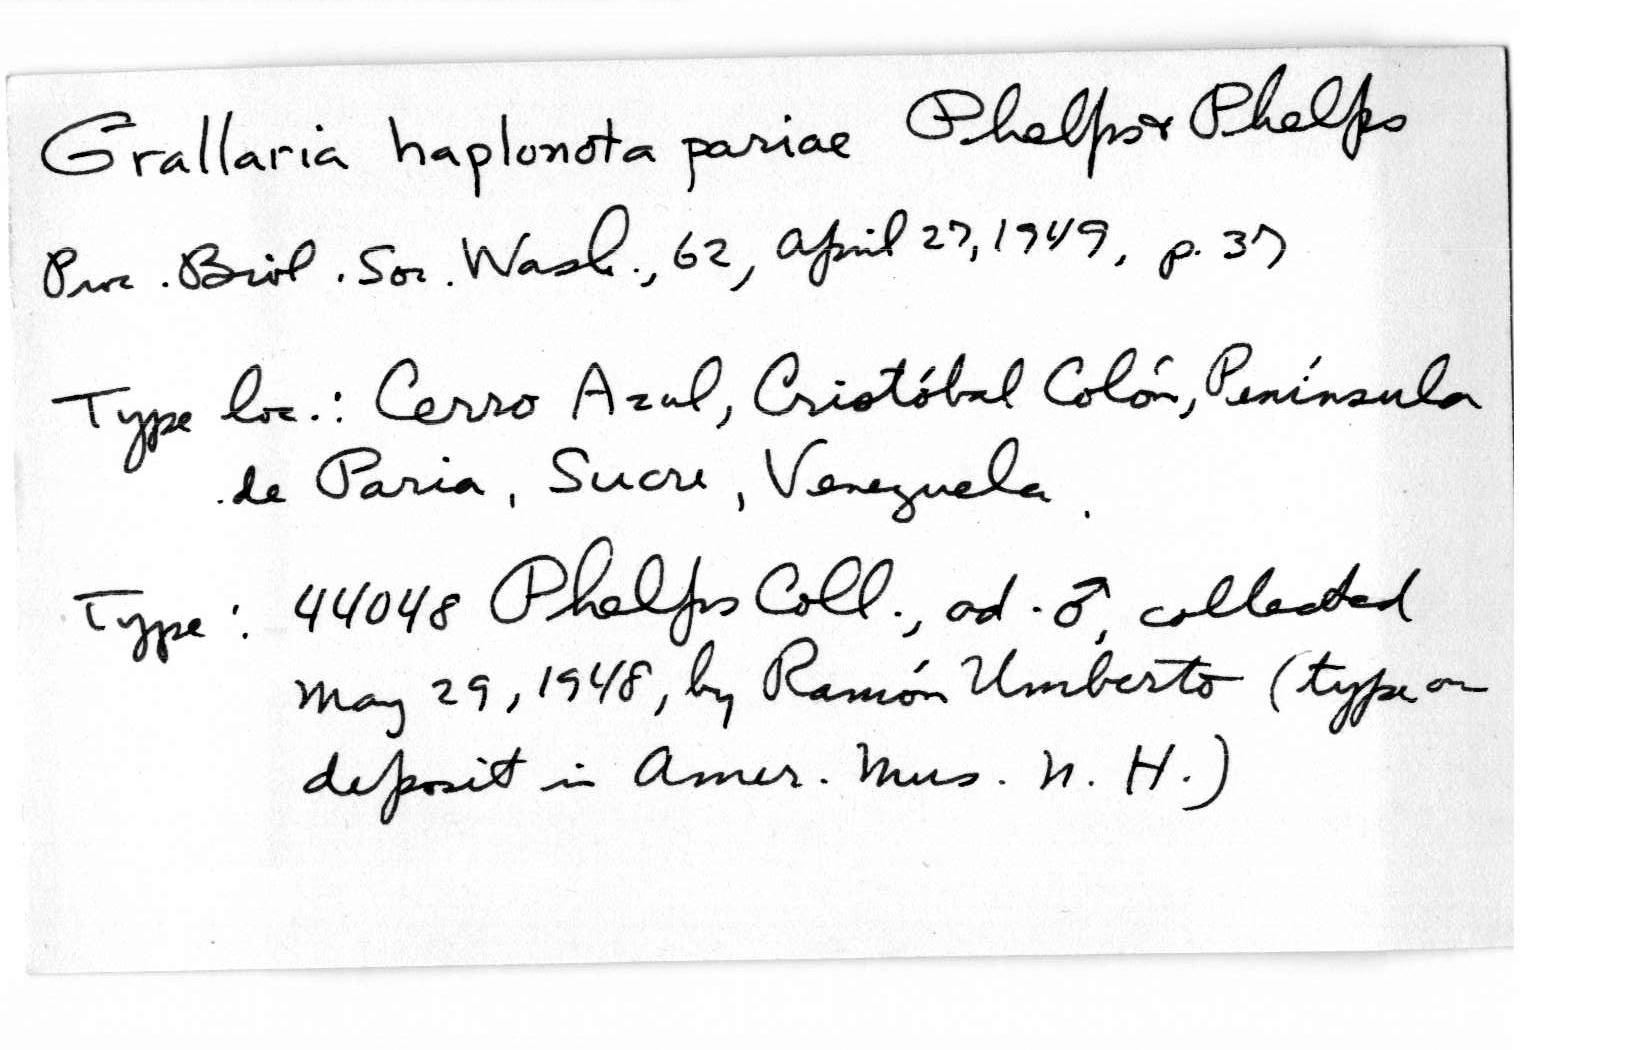 Grallaria haplonota pariae Phelps & Phelps
Proc. Biol. Soc. Wash., 62, April 27, 1949, p. 37
Type loc.: Cerro Azul, Cristóbal Colón, Península
de Paria, Sucre, Venezuela.
Type: 44048 Phelps Coll., ad. ♂, collected
May 29, 1948, by Ramón Umberto (type on
deposit in Amer. Mus. N. H.)